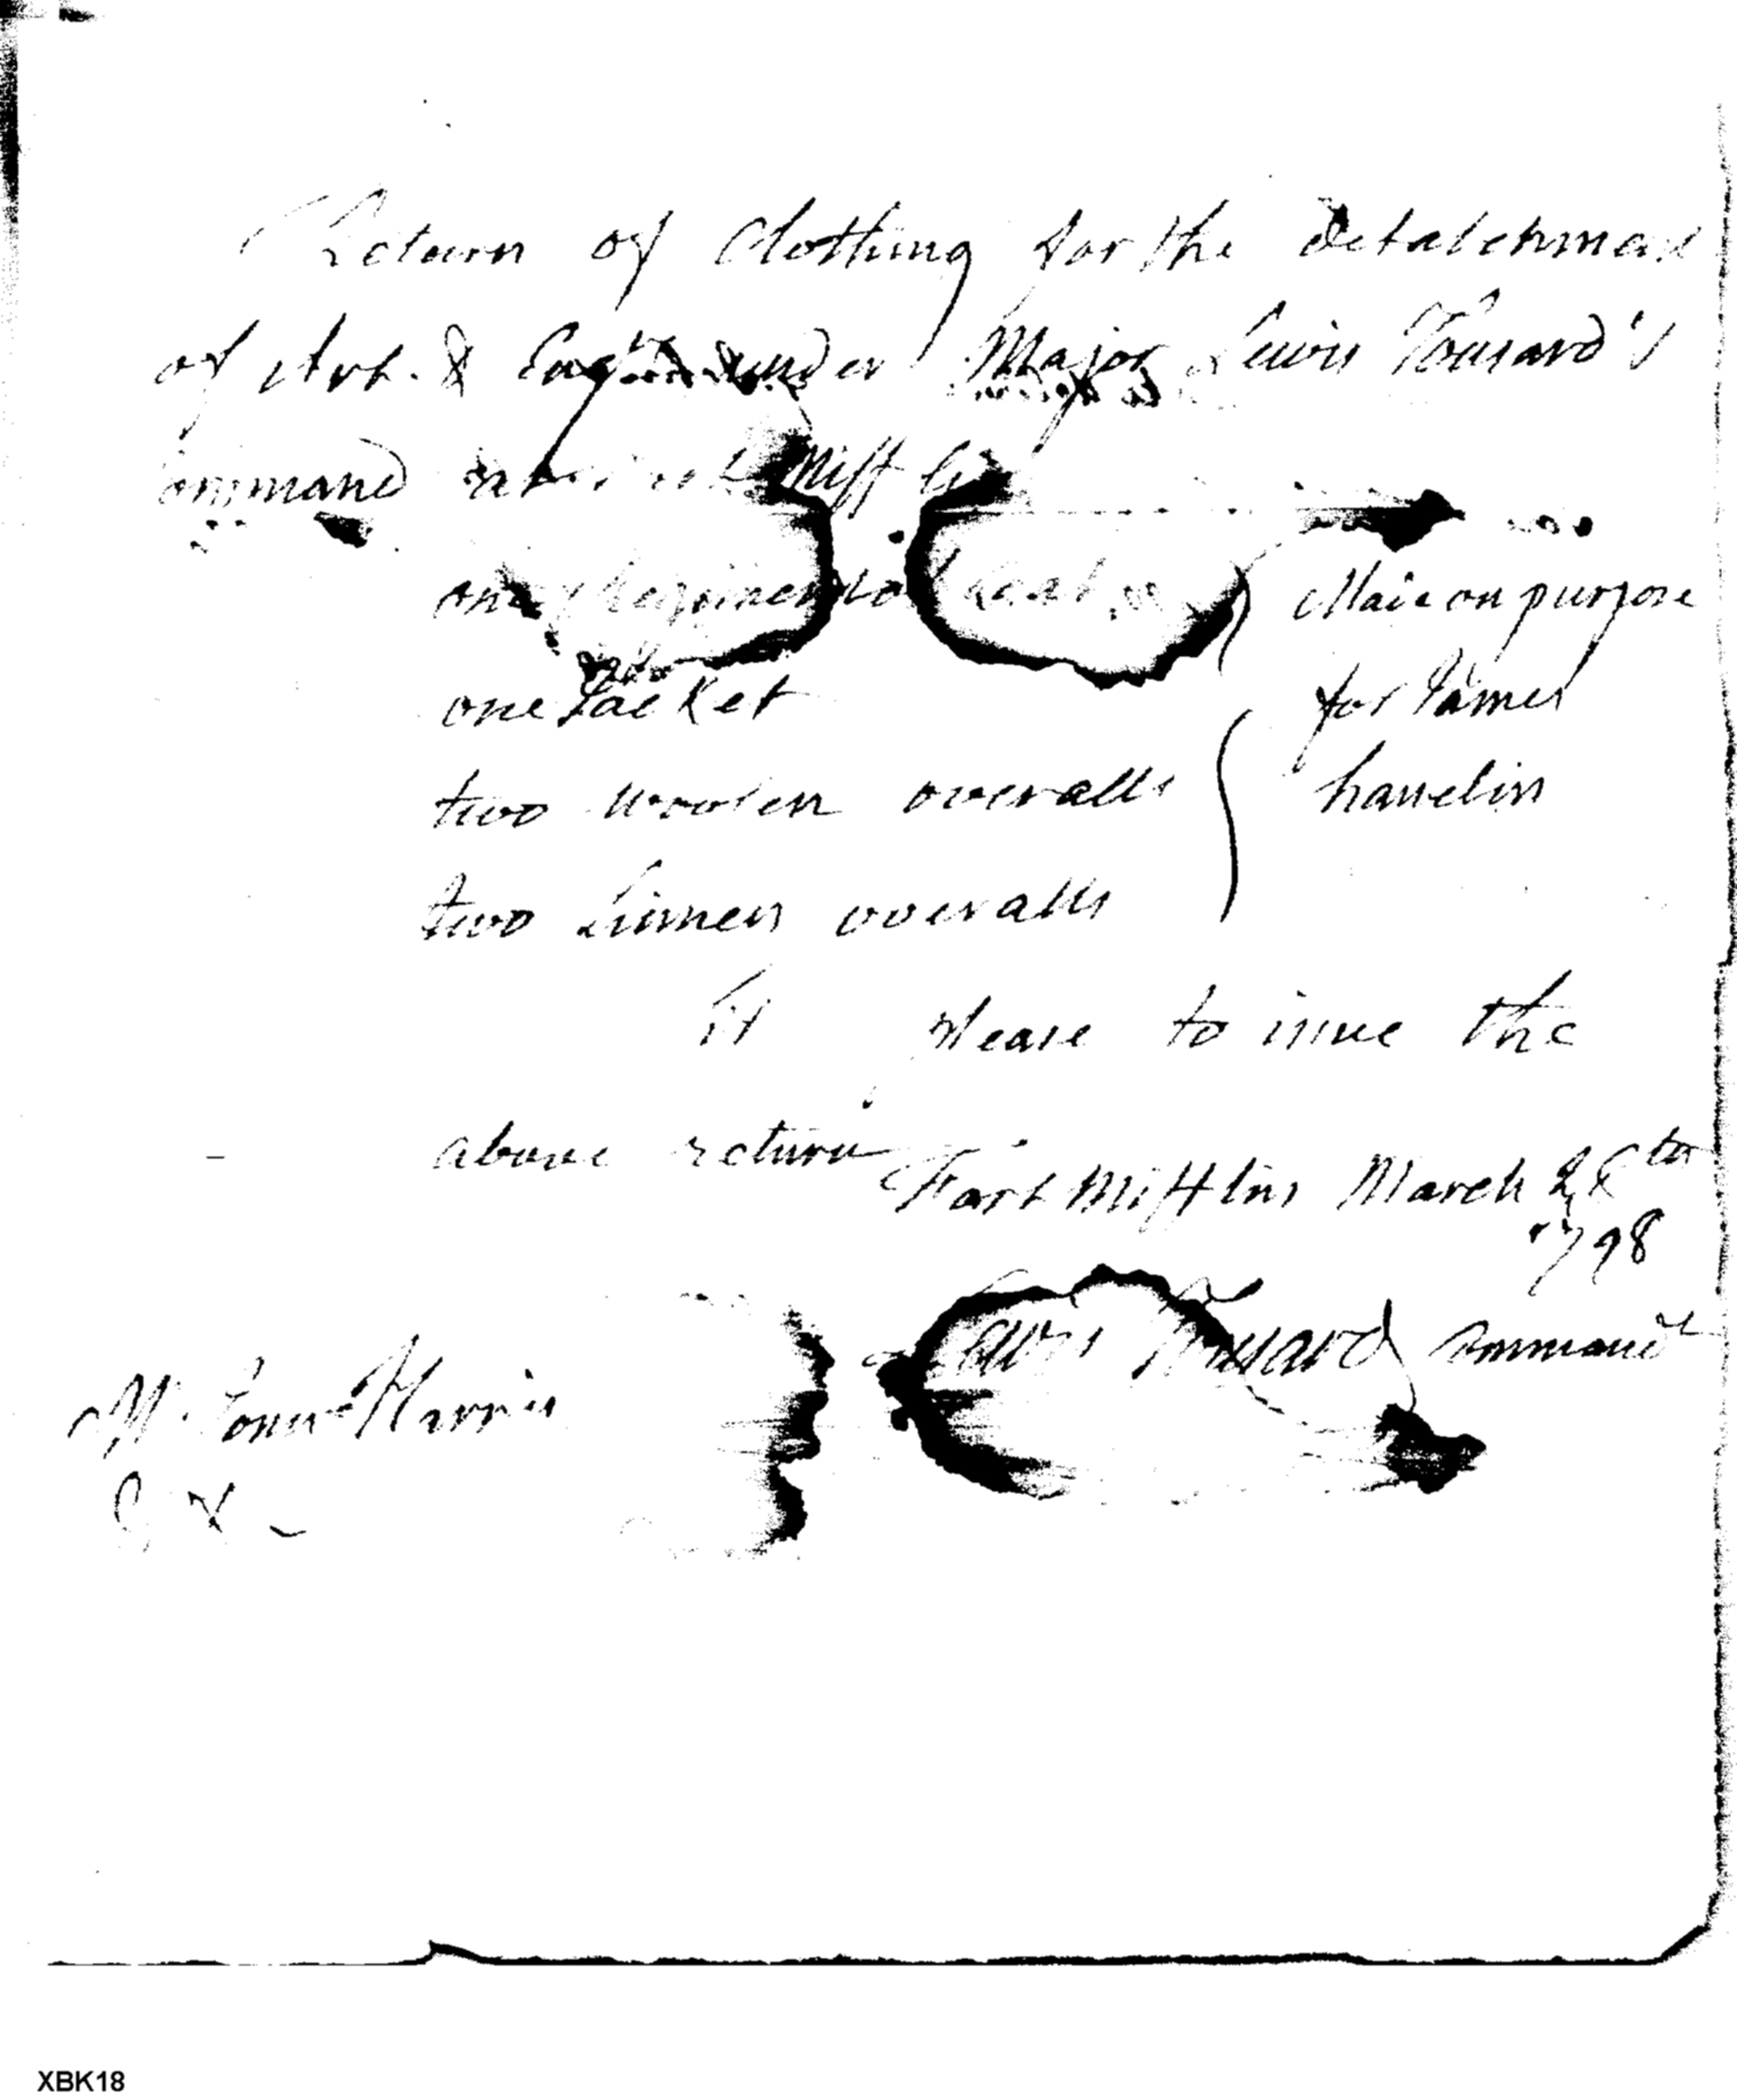 Return of Clothing for the Detatchment
of Art. & Eng. under Major Lewis Tousard's
command at Fort Mifflin
one Regimental Coat } Made on purpose
one Jacket for James
two woolen overalls hamelin
two Linnen overalls
please to issue the
above return
Fort Mifflin March 26th
1798
Lewis Tousard Command
M. John Harris
XBK18